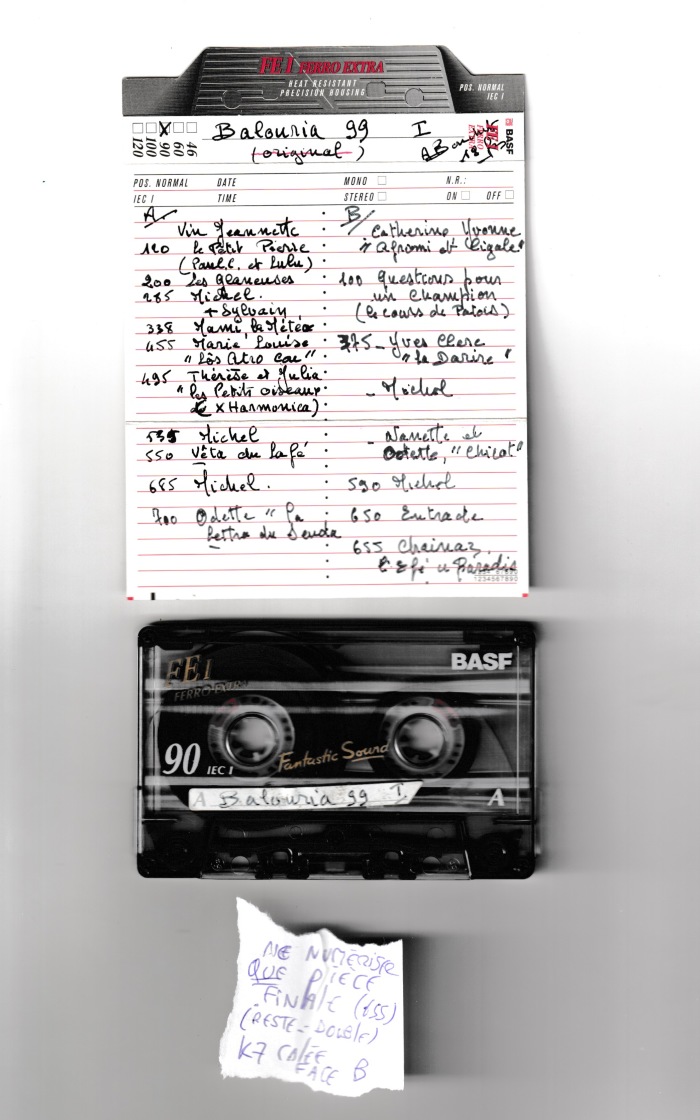 FE I FERRO EXTRA
HEAT RESISTANT
PRECISION HOUSING
POS. NORMAL
IEC I
120 100 90 60 46
Balouria 99 I
(original)
FE I FERRO EXTRA BASF
POS. NORMAL DATE MONO N.R.:
IEC I TIME STEREO ON OFF
A/
Vin Jeannette
120 le Petit Pierre
(Paul.C. et Lulu)
200 Les Glaneuses
285 Michel.
+ Sylvain
338 Mami la Météo
455 Maria Louise
"Los Atro Cou"
495 Thérèse et Julia
"les Petits oiseaux"
X Harmonica)
535 Michel
550 Vêta du lafé
685 Michel.
700 Odette "la
Lettra du Senda
B/
Catherine Yvonne
" Afromi et Cigale"
100 Questions pour
un champion
(le cours de Patois)
375 - Yves Clerc
"la Darire"
- Michel
- Nanette et
Odette, "Chicot"
590 Michel
650 Entrade
655 Chainaz
L'Efé u Paradis
1234567890
FE I
FERRO EXTRA
BASF
90 IEC I
Fantastic Sound
A Balouria 99 I
A
NE NUMÉRISER
QUE PIECE
FINALE (655)
(RESTE = DOUBLE)
K7 CALÉE
FACE B